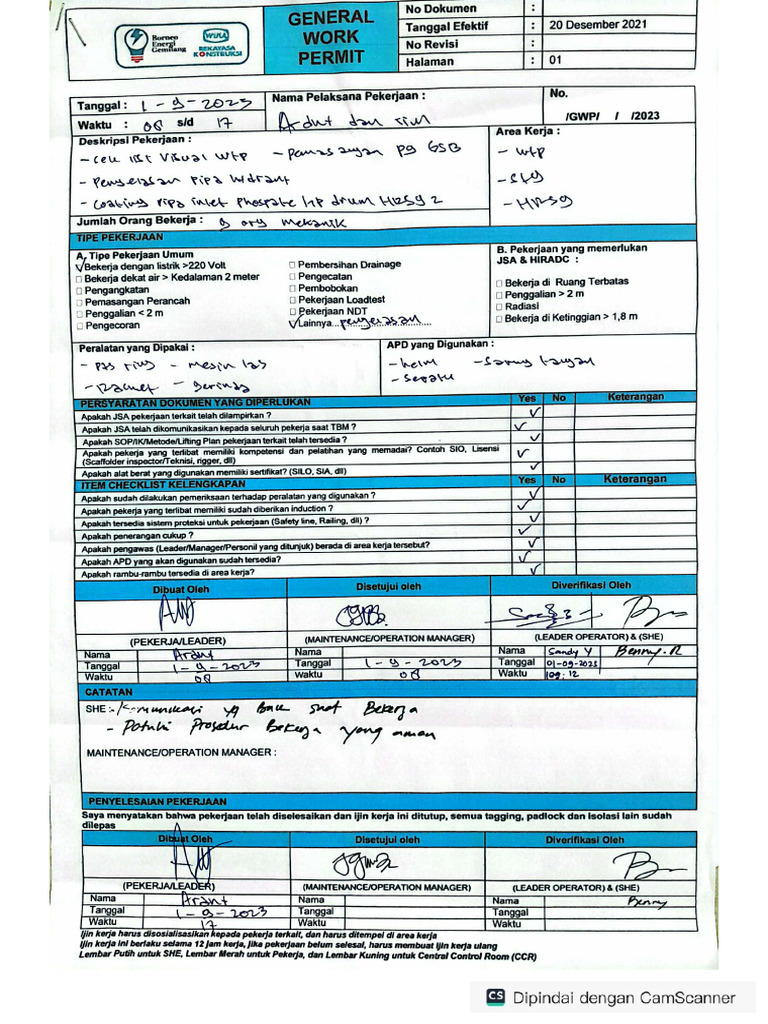 Borneo
Energi
Gemilang
WIKA
REKAYASA
KONSTRUKSI
GENERAL
WORK
PERMIT
No Dokumen :
Tanggal Efektif : 20 Desember 2021
No Revisi :
Halaman : 01
Tanggal : 1-9-2023
Nama Pelaksana Pekerjaan :
No.
Waktu : 08 s/d 17
Ardnt dan tim
/GWP/ / /2023
Deskripsi Pekerjaan :
Area Kerja :
- cek list Visual wtp - Pemasangan pg GSB
- wtp
- Pengelasan Pipa hidrant
- stg
- Coating pipa inlet phosphate hp drum HRSG 2
- HRSG
Jumlah Orang Bekerja : 9 org mekanik
TIPE PEKERJAAN
A. Tipe Pekerjaan Umum
B. Pekerjaan yang memerlukan
JSA & HIRADC :
Bekerja dengan listrik >220 Volt
Bekerja dekat air > Kedalaman 2 meter
Pengangkatan
Pemasangan Perancah
Penggalian < 2 m
Pengecoran
Pembersihan Drainage
Pengecatan
Pembobokan
Pekerjaan Loadtest
Pekerjaan NDT
Lainnya...pengelasan...
Bekerja di Ruang Terbatas
Penggalian > 2 m
Radiasi
Bekerja di Ketinggian > 1,8 m
Peralatan yang Dipakai :
APD yang Digunakan :
- Pas ring - mesin las
- helm - sarung tangan
- Gerinda
- sepatu
PERSYARATAN DOKUMEN YANG DIPERLUKAN Yes No Keterangan
Apakah JSA pekerjaan terkait telah dilampirkan ?
Apakah JSA telah dikomunikasikan kepada seluruh pekerja saat TBM ?
Apakah SOP/IK/Metode/Lifting Plan pekerjaan terkait telah tersedia ?
Apakah pekerja yang terlibat memiliki kompetensi dan pelatihan yang memadai? Contoh SIO, Lisensi
(Scaffolder inspector/Teknisi, rigger, dll)
Apakah alat berat yang digunakan memiliki sertifikat? (SILO, SIA, dll)
ITEM CHECKLIST KELENGKAPAN Yes No Keterangan
Apakah sudah dilakukan pemeriksaan terhadap peralatan yang digunakan ?
Apakah pekerja yang terlibat memiliki sudah diberikan induction ?
Apakah tersedia sistem proteksi untuk pekerjaan (Safety line, Railing, dll) ?
Apakah penerangan cukup ?
Apakah pengawas (Leader/Manager/Personil yang ditunjuk) berada di area kerja tersebut?
Apakah APD yang akan digunakan sudah tersedia?
Apakah rambu-rambu tersedia di area kerja?
Dibuat Oleh Disetujui oleh Diverifikasi Oleh
(PEKERJA/LEADER) (MAINTENANCE/OPERATION MANAGER) (LEADER OPERATOR) & (SHE)
Nama Ardnt Nama Nama Sandy Y Benny.R
Tanggal 1-9-2023 Tanggal 1-9-2023 Tanggal 01-09-2023
Waktu 08 Waktu 08 Waktu 09:12
CATATAN
SHE :- Komunikasi yg Baik saat Bekerja
- Patuhi Prosedur Bekerja yang aman
MAINTENANCE/OPERATION MANAGER :
PENYELESAIAN PEKERJAAN
Saya menyatakan bahwa pekerjaan telah diselesaikan dan ijin kerja ini ditutup, semua tagging, padlock dan isolasi lain sudah
dilepas
Dibuat Oleh Disetujui oleh Diverifikasi Oleh
(PEKERJA/LEADER) (MAINTENANCE/OPERATION MANAGER) (LEADER OPERATOR) & (SHE)
Nama Ardnt Nama Nama Benny
Tanggal 1-9-2023 Tanggal Tanggal
Waktu 17 Waktu Waktu
Ijin kerja harus disosialisasikan kepada pekerja terkait, dan harus ditempel di area kerja
Ijin kerja ini berlaku selama 12 jam kerja, jika pekerjaan belum selesai, harus membuat ijin kerja ulang
Lembar Putih untuk SHE, Lembar Merah untuk Pekerja, dan Lembar Kuning untuk Central Control Room (CCR)
CS Dipindai dengan CamScanner